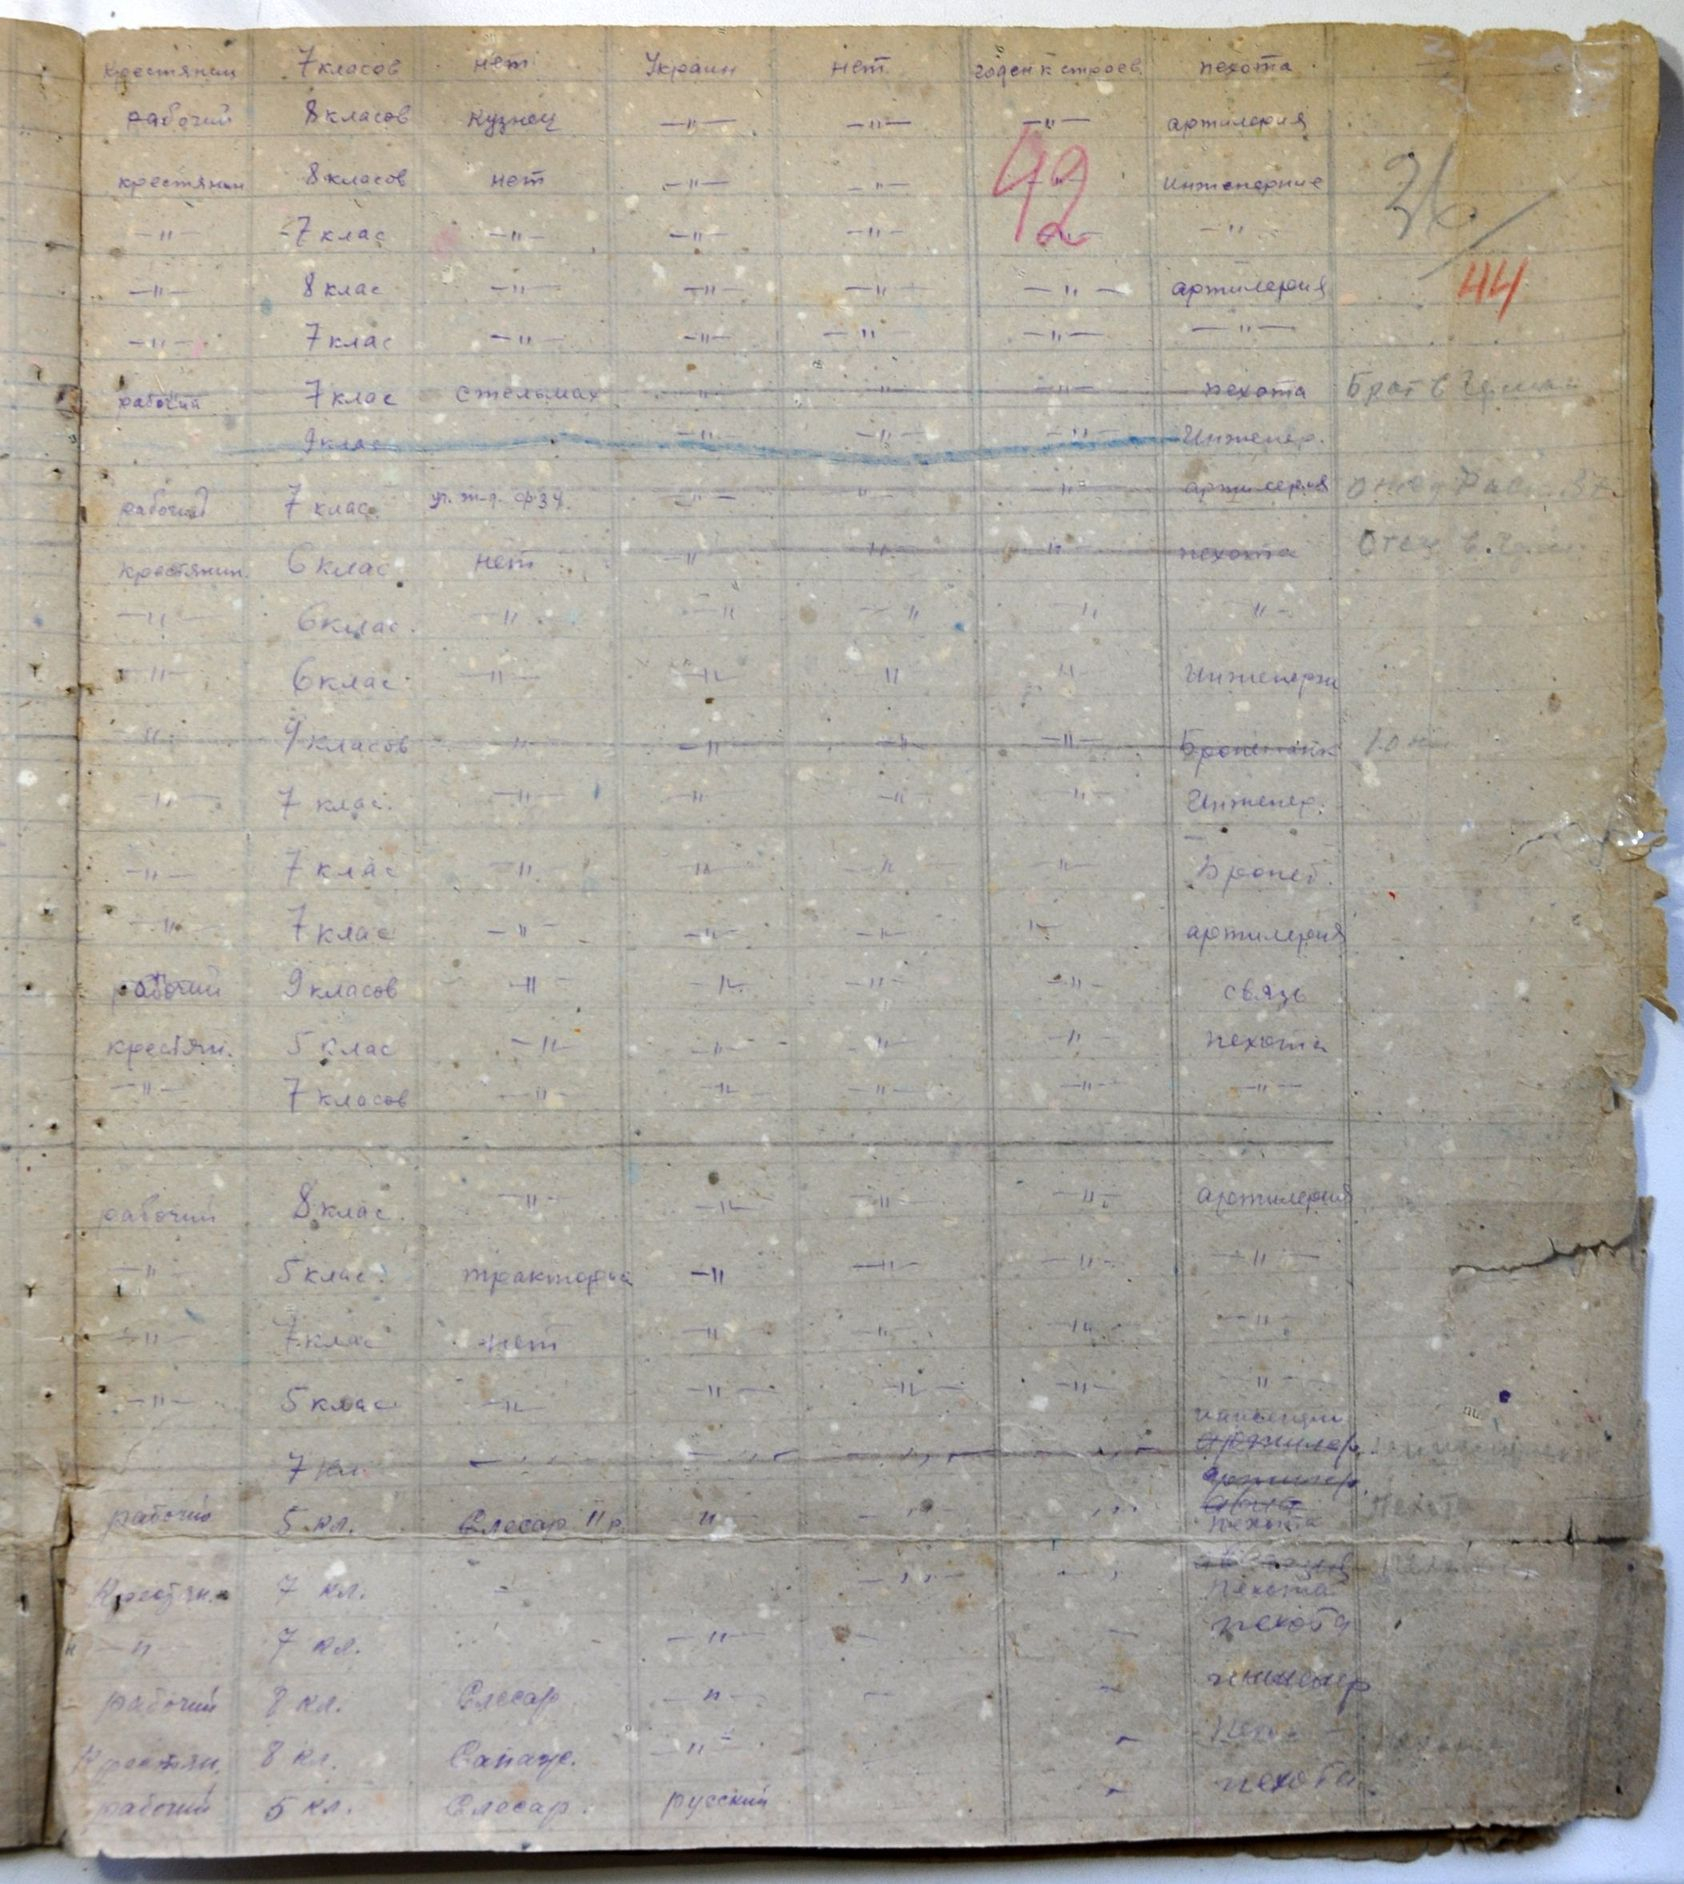 крестянин 7 класов нет Украин нет годен к строев. пехота
рабочий 8 класов кузнец —"— —"— —"— артилерия
крестянин 8 класов нет —"— —"— 42 инженерние 36
—"— 7 клас —"— —"— —"— —"— —"—
44
—"— 8 клас —"— —"— —"— —"— артилерия
—"— 7 клас —"— —"— —"— —"— —"—
рабочий 7 клас стельмах —"— —"— —"— пехота Брат в
9 клас —"— —"— —"— Инженер.
рабочий 7 клас. —"— —"— —"— артилерия
крестянин. 6 клас нет —"— —"— —"— пехота Отец в
—"— 6 клас. —"— —"— —"— —"— —"—
—"— 6 клас —"— —"— —"— —"— Инженерн
—"— 9 класов —"— —"— —"— —"— Бронетанк
—"— 7 клас. —"— —"— —"— —"— Инженер.
—"— 7 клас —"— —"— —"— —"— Бронет.
—"— 7 клас —"— —"— —"— —"— артилерия
рабочий 9 класов —"— —"— —"— —"— связь
крестян. 5 клас —"— —"— —"— —"— пехота
—"— 7 класов —"— —"— —"— —"— —"—
рабочий 8 клас. —"— —"— —"— —"— артилерия
—"— 5 клас. —"— —"— —"— —"—
—"— 7 клас нет —"— —"— —"— —"—
—"— 5 клас —"— —"— —"— —"— —"—
7 кл. —"— —"— —"— —"— артилер.
артилер.
рабочий 5 кл. Слесар II р. " —"— —"— пехота
Крестян. 7 кл. - —"— —"— пехота
—"— 7 кл. —"— — — пехота
рабочий 8 кл. Слесар —"— — - инженер
Крестян. 8 кл. Сапож. —"— -
рабочий 5 кл. Слесар. русский - пехота